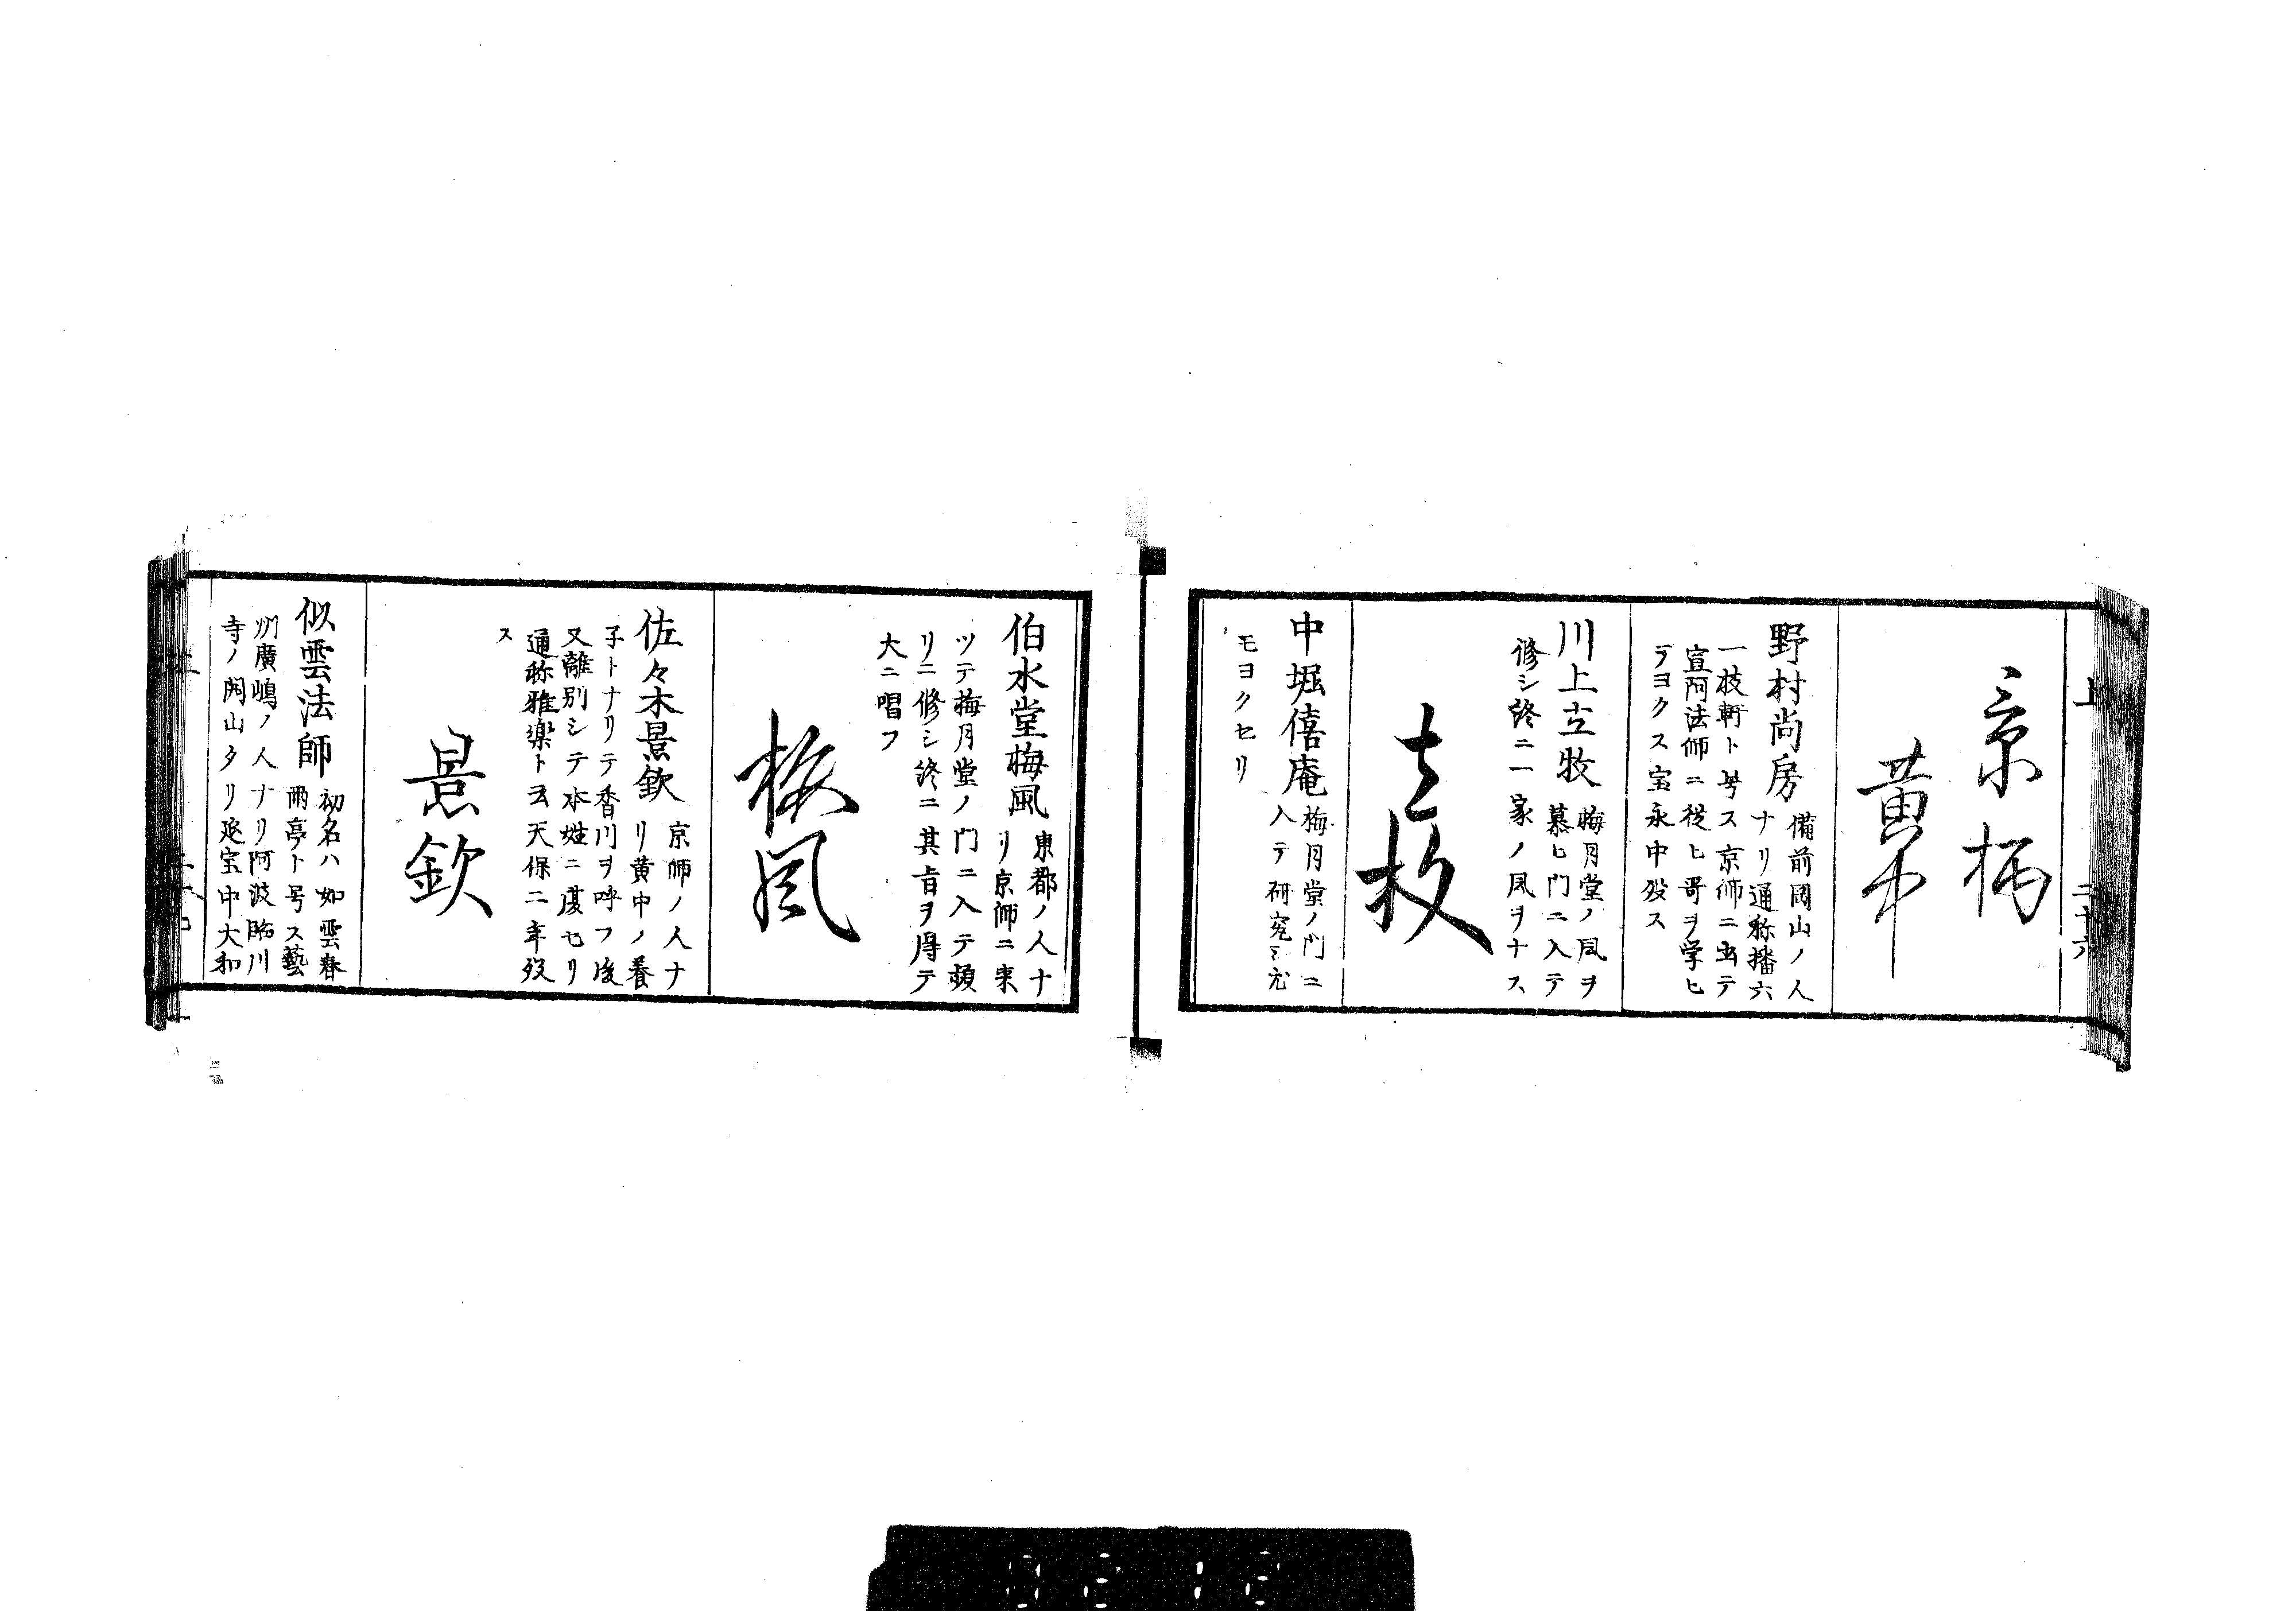 上
二十六
景柄
黄中
野村尚房
備前岡山ノ人
ナリ通称播六
一枝軒ト号ス京師ニ出テ
宣阿法師ニ従ヒ哥ヲ学ヒ
テヨクス宝永中歿ス
川上立牧
梅月堂ノ風ヲ
慕ヒ門ニ入テ
修シ終ニ一家ノ風ヲナス
中堀僖庵
梅月堂ノ門ニ
入テ研究シ尤
モヨクセリ
伯水堂梅風
東都ノ人ナ
リ京師ニ来
ツテ梅月堂ノ門ニ入テ頻
リニ修シ終ニ其旨ヲ得テ
大ニ唱フ
梅風
佐々木景欽
京師ノ人ナ
リ黄中ノ養
子トナリテ香川ヲ呼フ後
又離別シテ本姓ニ復セリ
通称雅楽ト云天保二年歿
ス
景欽
似雲法師
初名ハ如雲春
雨亭ト号ス藝
州廣嶋ノ人ナリ阿波臨川
寺ノ開山タリ延宝中大和